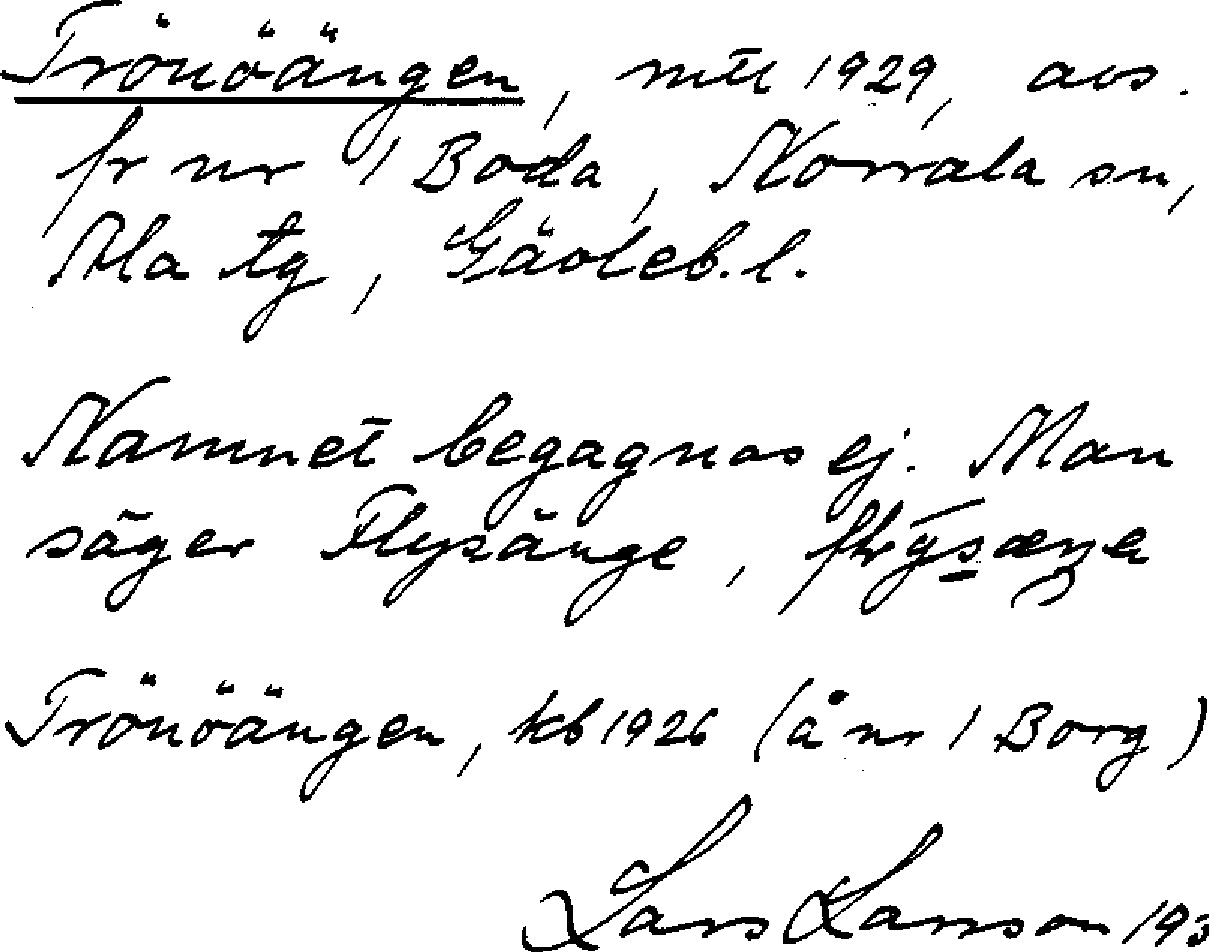 Trönöängen, mtl 1929, avs.
fr nr 1 Boda, Norrala sn,
Ala tg, Gävleb. l.
Namnet begagnas ej. Man
säger Flysänge,
Trönöängen, kb 1926 (å nr 1 Borg)
Lars Larsson 193